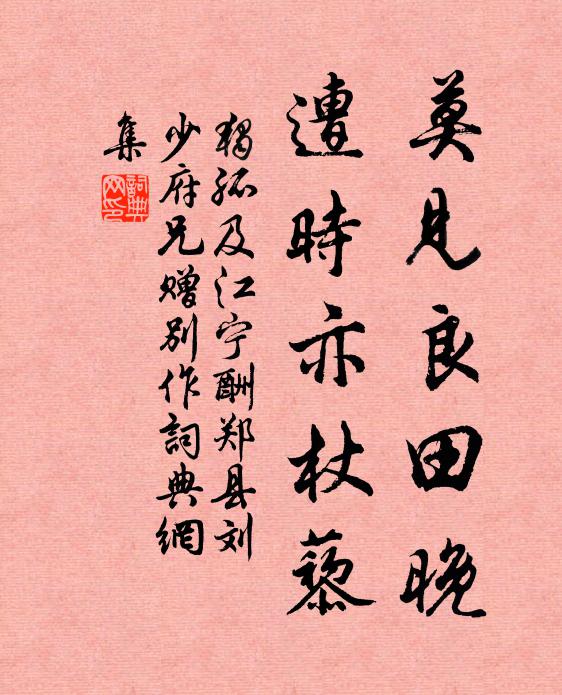 莫見良田晚
遭時亦杖藜
獨孤及江宁酬郑县刘
少府兄赠别作詞典網
集
詞典
网印